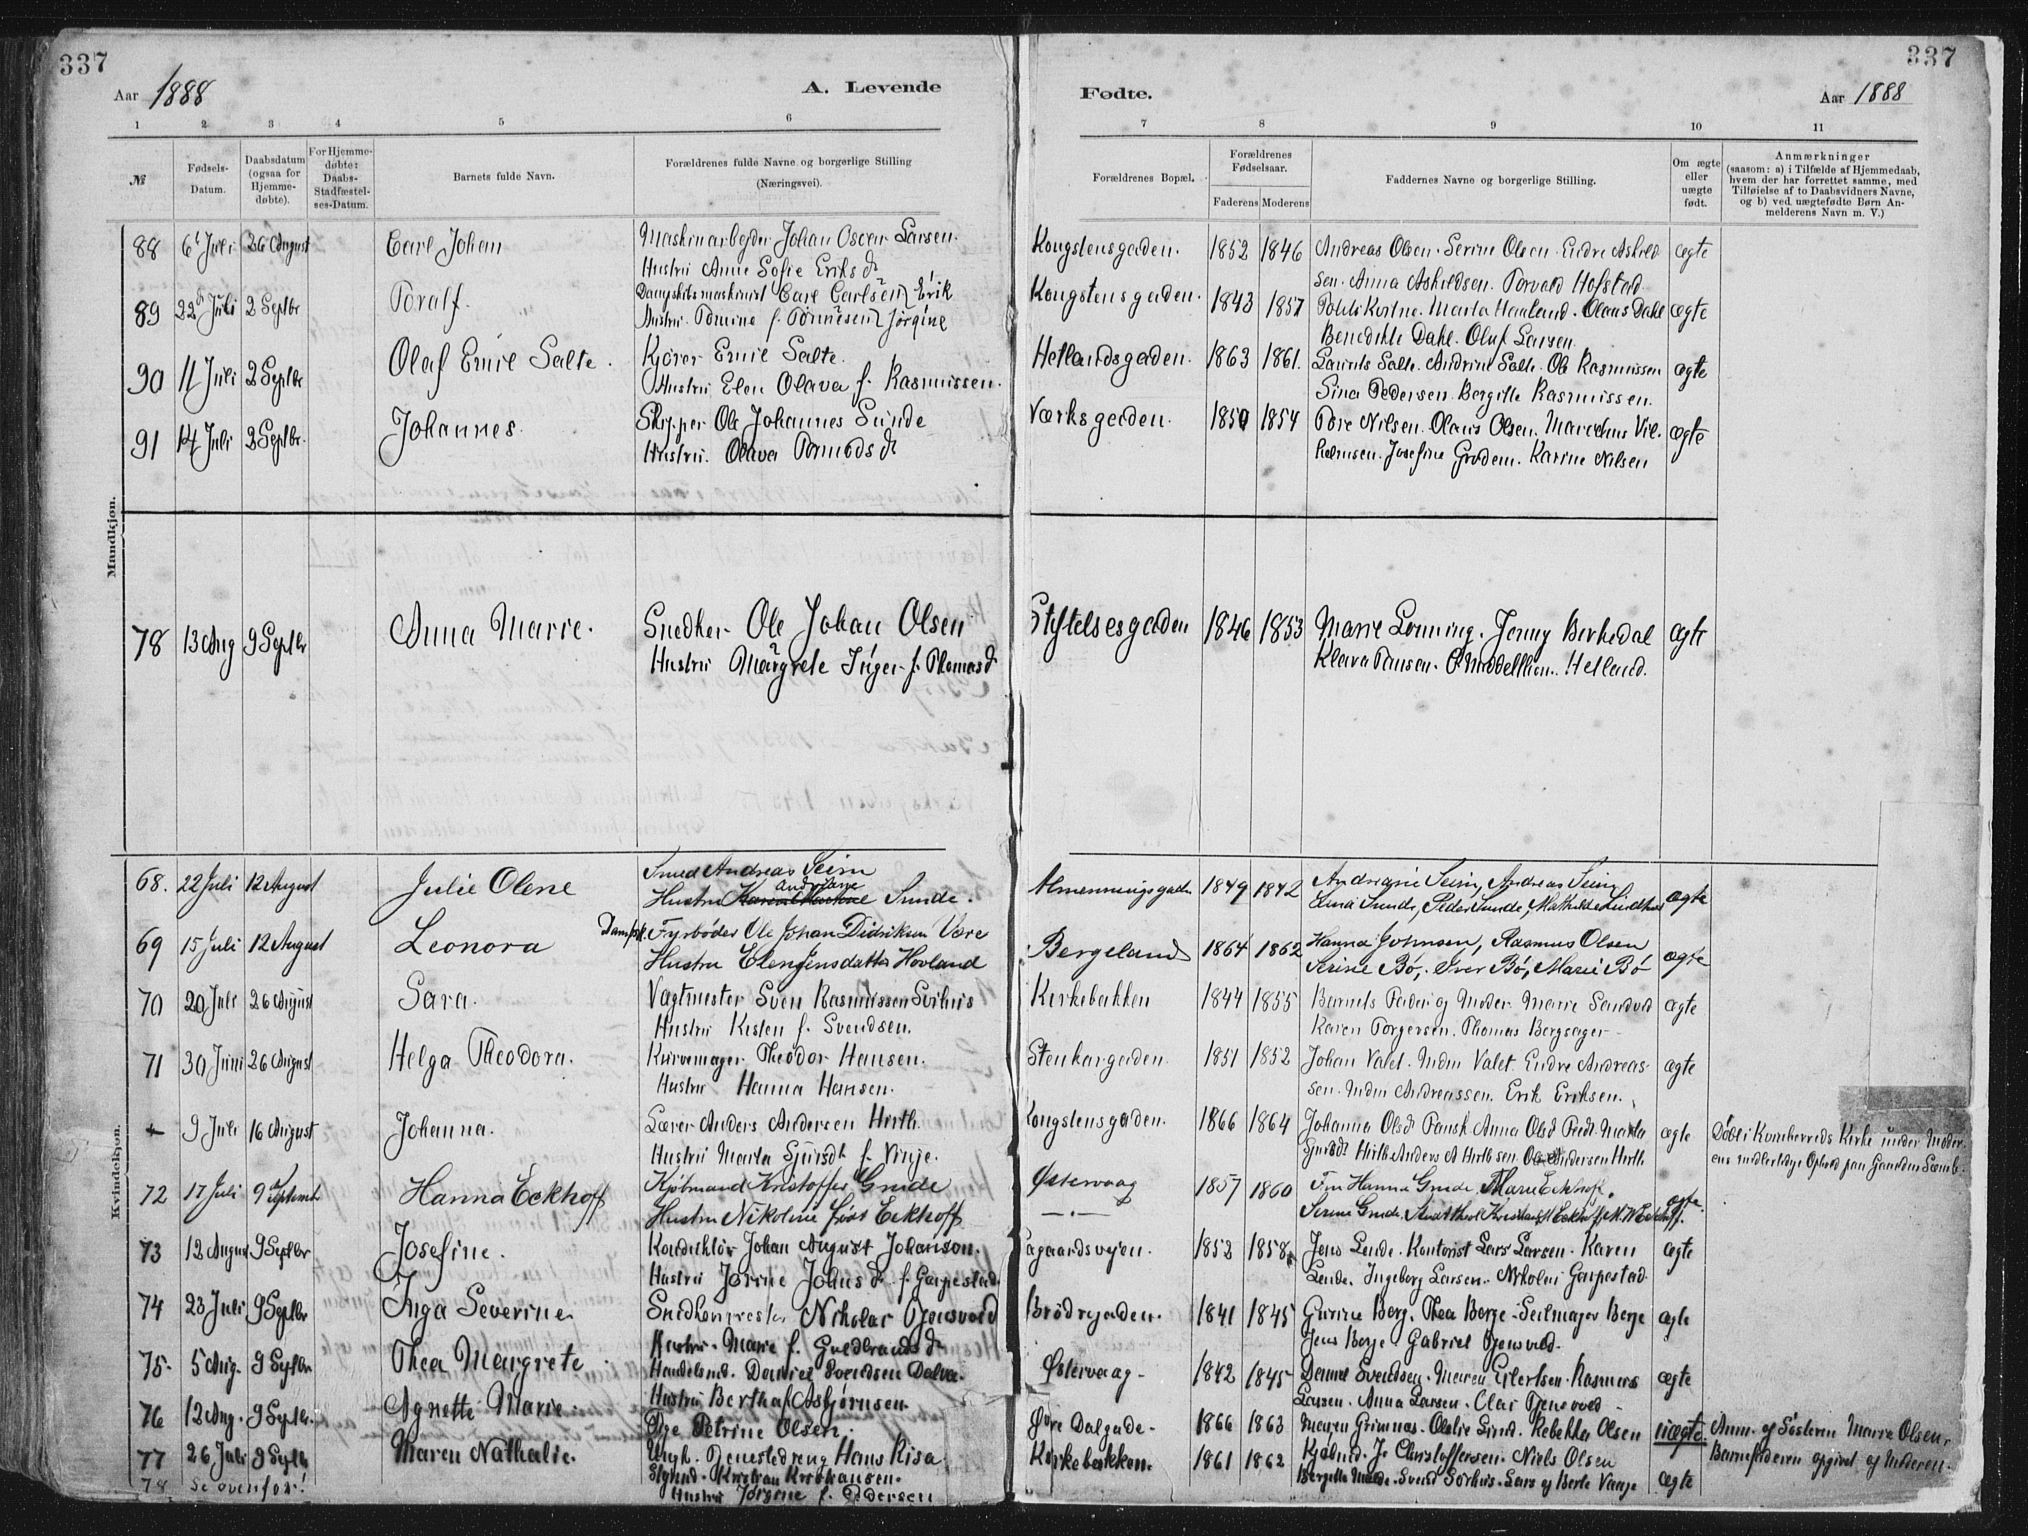 337
337
Aar 1888
A. Levende
Fødte.
Aar 1888
1 2 3 4 5 6 7 8 9 10 11
№
Fødsels-Datum.
Daabsdatum (ogsaa for Hjemme-døbte).
For Hjemme-døbte: Daabs-Stadfæstel-ses-Datum.
Barnets fulde Navn.
Forældrenes fulde Navne og borgerlige Stilling (Næringsvei).
Forældrenes Bopæl.
Forældrenes Fødselsaar.
Faderens Moderens
Faddernes Navne og borgerlige Stilling.
Om ægte eller uægte født.
Anmærkninger (saasom: a) i Tilfælde af Hjemmedaab, hvem der har forrettet samme, med Tilføielse af to Daabsvidners Navne, og b) ved uægtefødte Børn An-melderens Navn m. V.)
Mandkjøn.
88 6t Juli 26 August Carl Johan Maskinarbeider Johan Oscar Larsen. Kongstensgaden. 1852 1846 Andreas Olsen. Serine Olsen. Endre Askild ægte
Hustru Anne Sofie Eriksdr sen. Anna Askildsen. Torvald Hofstad
89 22de Juli 2 Septbr Toralf. Dampskibsmaskinist Carl Carlsen Erik Kongstensgaden. 1843 1857 Marta Haaland. Olaus Dahl ægte
Hustru. Tomine f. Tønnesen Jørgine Benedikte Dahl. Oluf Larsen.
90 11 Juli 2 Septbr Olaf Emil Salte. Kjører Emil Salte. Hetlandsgaden. 1863 1861. Laurits Salte. Andrine Salte. Ole Rasmussen ægte
Hustru Elen Olava f. Rasmussen. Sina Pedersen. Bergitte Rasmussen.
91 14 Juli 2 Septbr. Johannes. Skipper Ole Johannes Sunde Værksgaden. 1850 1854 Tore Nilsen. Olaus Olsen. Marcelius Vil- ægte
Hustru. Olava Tormodsdr helmsen. Josefine Grødem. Karine Nilsen
78 13 Aug 9 Septbr Anna Marie. Snedker Ole Johan Olsen Stiftelsesgaden 1846 1853 Marie Lønning. Jenny Birkedal ægte
Hustru Margrete Inger f. Thomasdr Klara Hetland.
Kvindekjøn.
68. 22 Juli 12 August Julie Olene Smed Andreas Seim Almenningsgade 1849 1842 Andreas Seim ægte
Hustru Sunde. Sunde, Peder Sunde, Mathilde
69 15 Juli 12 August Leonora Dampsk. Fyrbøder Ole Johan Didriksen Vere Bergeland 1864 1862 Hanna Johnsen, Rasmus Olsen ægte
Hustru Elen Jensdatter Hovland Serine Bø, Iver Bø, Marie Bø
70 20 Juli 26 August Sara. Vagtmester Sven Rasmussen Sørhus Kirkebakken 1844 1855 Barnets Fader og Moder. Marie Sandved ægte
Hustru Kisten f. Svendsen. Karen Torgersen. Thomas Bergsager
71 30 Juni 26 August Helga Theodora. Kurvemager Theodor Hansen. Stenkargaden. 1851 1852 Johan Valet. Mdm Valet. Endre Andreas- ægte
Hustru Hanna Hansen. sen. Mdm Andreassen. Erik Eriksen.
9 Juli 16 August Johanna. Lærer Anders Andersen Hirth. Kongstensgaden. 1866 1864 Johanna Olsd Anna Olsd Marta ægte Døbt i Kvinherreds Kirke under Moder-
Hustru Marta Sjursdt f. Vinje. Sjursdt Hirth Anders A Hirth sen. Ole Andersen Hirth ens midlertidige Ophold paa Gaarden
72 17 Juli 9 September Hanna Eckhoff Kjøbmand Kristoffer Grude Østervaag 1857 1860 Fru Hanna Grude Marie Eckhoff. ægte.
Hustru Nikoline født Eckhoff —·— Serine Grude
73 12 August 9 Septbr Josefine. Konduktør Johan August Johanson. Lagaardsvejen. 1852 1858 Jens Lende. Kontorist Lars Larsen. Karen ægte
Hustru Jorine Johnsdr. f. Garpestad. Lende. Ingeborg Larsen. Nikolai Garpestad.
74 23 Juli 9 Septbr Inga Severine Snedkermester Nikolai Tjensvold Brødregaden. 1841 1845 Gurine Berg. Thea Berge. Seilmager Berge ægte
Hustru. Marie f. Guldbrandsdr Jens Berge. Gabriel Tjensvold.
75. 5 Aug. 9 Septbr Thea Margrete Handelsmd. Daniel Svendsen Dalva. Østervaag. 1842 1845 Daniel Svendsen. Maren Eilertsen. Rasmus ægte
Hustru Bertha f Asbjørnsen. Larsen. Anna Larsen. Olai Tjensvold.
76 12 Aug. 9 Septbr. Agnette Marie. Pige Petrine Olsen. Øvre Dalgade. 1866 1863 Maren Grimnæs. Oladie Lind. Rebekka Olsen uægte. Anm. af Søsteren Marie Olsen,
Ungk. Tjenestedreng Hans Risa Kjøbmd. J. Christoffersen. Niels Olsen Barnefaderen opgivet af Moderen.
77 26 Juli 9 Septbr Maren Nathalie. Kristian Kristiansen. Kirkebakken. 1861 1862 Bergitte Svend Sørhus. Lars og Berte Vaage ægte
78 se ovenfor! Hustru Jørgine f. Pedersen